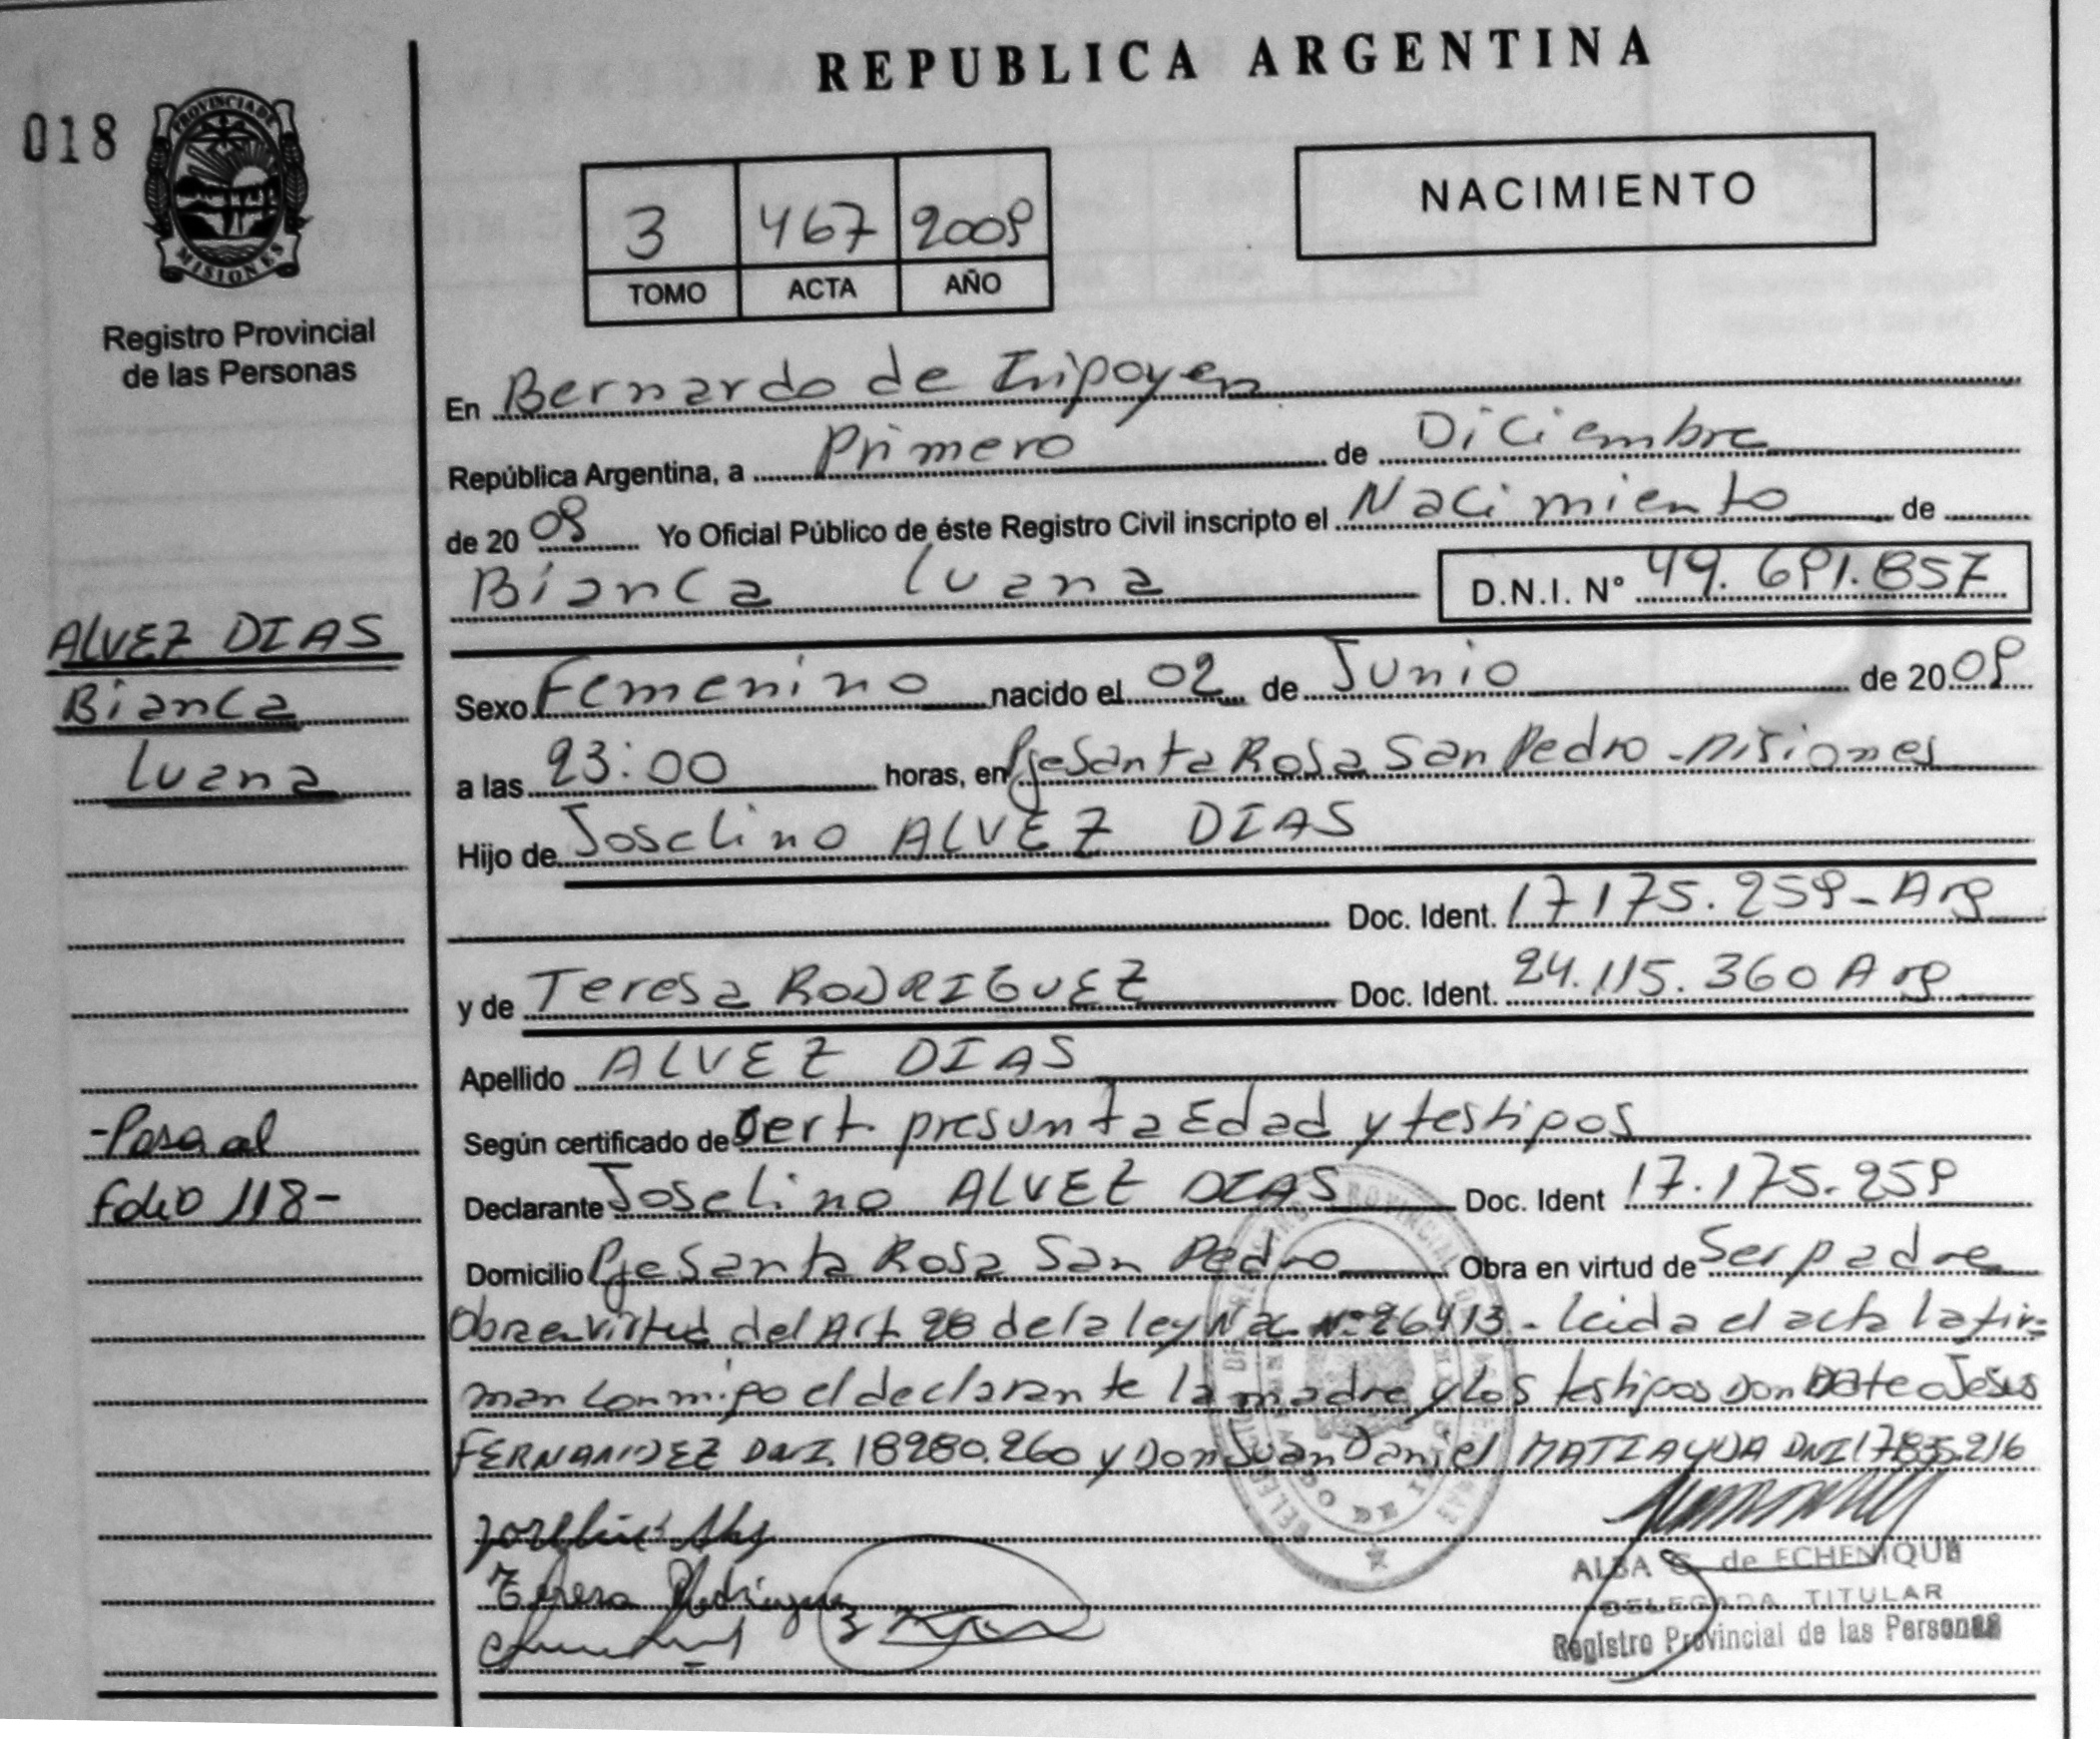 REPUBLICA ARGENTINA
018
PROVINCIA DE
MISIONES
Registro Provincial
de las Personas
3 467 2009
TOMO ACTA AÑO
NACIMIENTO
En Bernardo de Irigoyen
República Argentina, a Primero de Diciembre
de 20 09 Yo Oficial Público de éste Registro Civil inscripto el Nacimiento de
Bianca Luana D.N.I. N° 49.691.857
ALVEZ DIAS
Bianca
Luana
Sexo Femenino nacido el 02 de Junio de 20 09
a las 23:00 horas, en Pje Santa Rosa San Pedro - Misiones
Hijo de Joselino ALVEZ DIAS
Doc. Ident. 17175.259 - Arg
y de Teresa RODRIGUEZ Doc. Ident. 24.115.360 Arg
Apellido ALVEZ DIAS
-Pasa al
Folio 118-
Según certificado de Cert. presunta Edad y testigos
Declarante Joselino ALVEZ DIAS Doc. Ident 17.175.259
Domicilio Pje Santa Rosa San Pedro Obra en virtud de Ser padre
Obra en virtud del Art. 28 de la ley Nac N° 26413 - leida el acta la fir=
man conmigo el declarante la madre y los testigos Don Jesus
FERNANDEZ DNI. 18280.260 y Don Juan Daniel MATIAUDA DNI
Teresa Rodriguez
ALBA G. de ECHENIQUE
DELEGADA TITULAR
Registro Provincial de las Personas